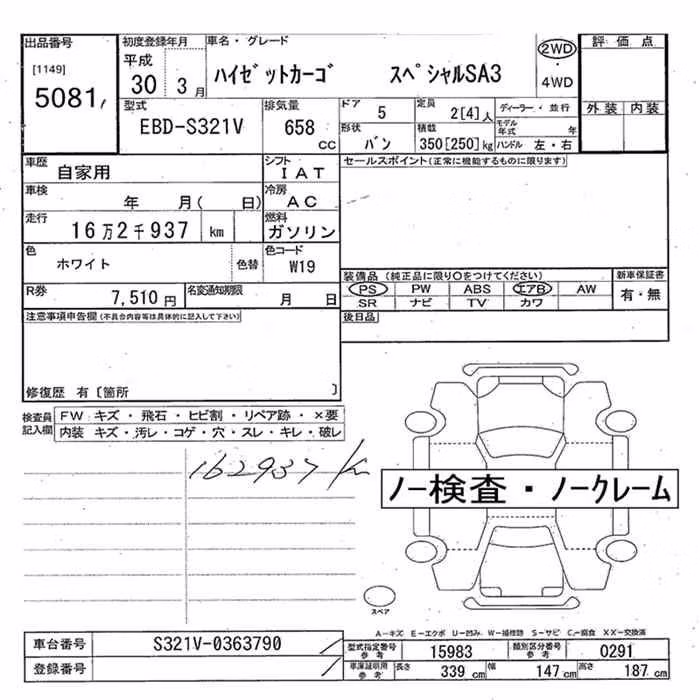 出品番号 初度登録年月 車名・グレード 評価点
[1149] 平成 2WD
5081 30 3月 ハイゼットカーゴ スペシャルSA3 4WD
外装 内装
型式 排気量 ドア 5 定員 2[4]人 ディーラー・並行
EBD-S321V 658 CC 形状 バン 積載 350[250]kg モデル年式 年 ハンドル 左・右
車歴 自家用 シフト IAT セールスポイント(正常に機能するものに限ります)
車検 年 月( 日) 冷房 AC
走行 16万2千937 km 燃料 ガソリン
色 ホワイト 色替 色コード W19
装備品(純正品に限り○をつけてください) 新車保証書
PS PW ABS エアB AW 有・無
SR ナビ TV カワ
R券 7,510円 名変通知期限 月 日
注意事項申告欄(不具合内容等は具体的に記入して下さい) 後日品
修復歴 有〔箇所 〕
検査員記入欄 FW: キズ・飛石・ヒビ割・リペア跡・×要
内装 キズ・汚レ・コゲ・穴・スレ・キレ・破レ
162937km
ノー検査・ノークレーム
スペア
A-キズ E-エクボ U-凹み W-補修跡 S-サビ C-腐食 XX-交換済
車台番号 S321V-0363790 型式指定番号参考 15983 類別区分番号参考 0291
登録番号 車庫証明用参考 長さ 339cm 幅 147cm 高さ 187cm